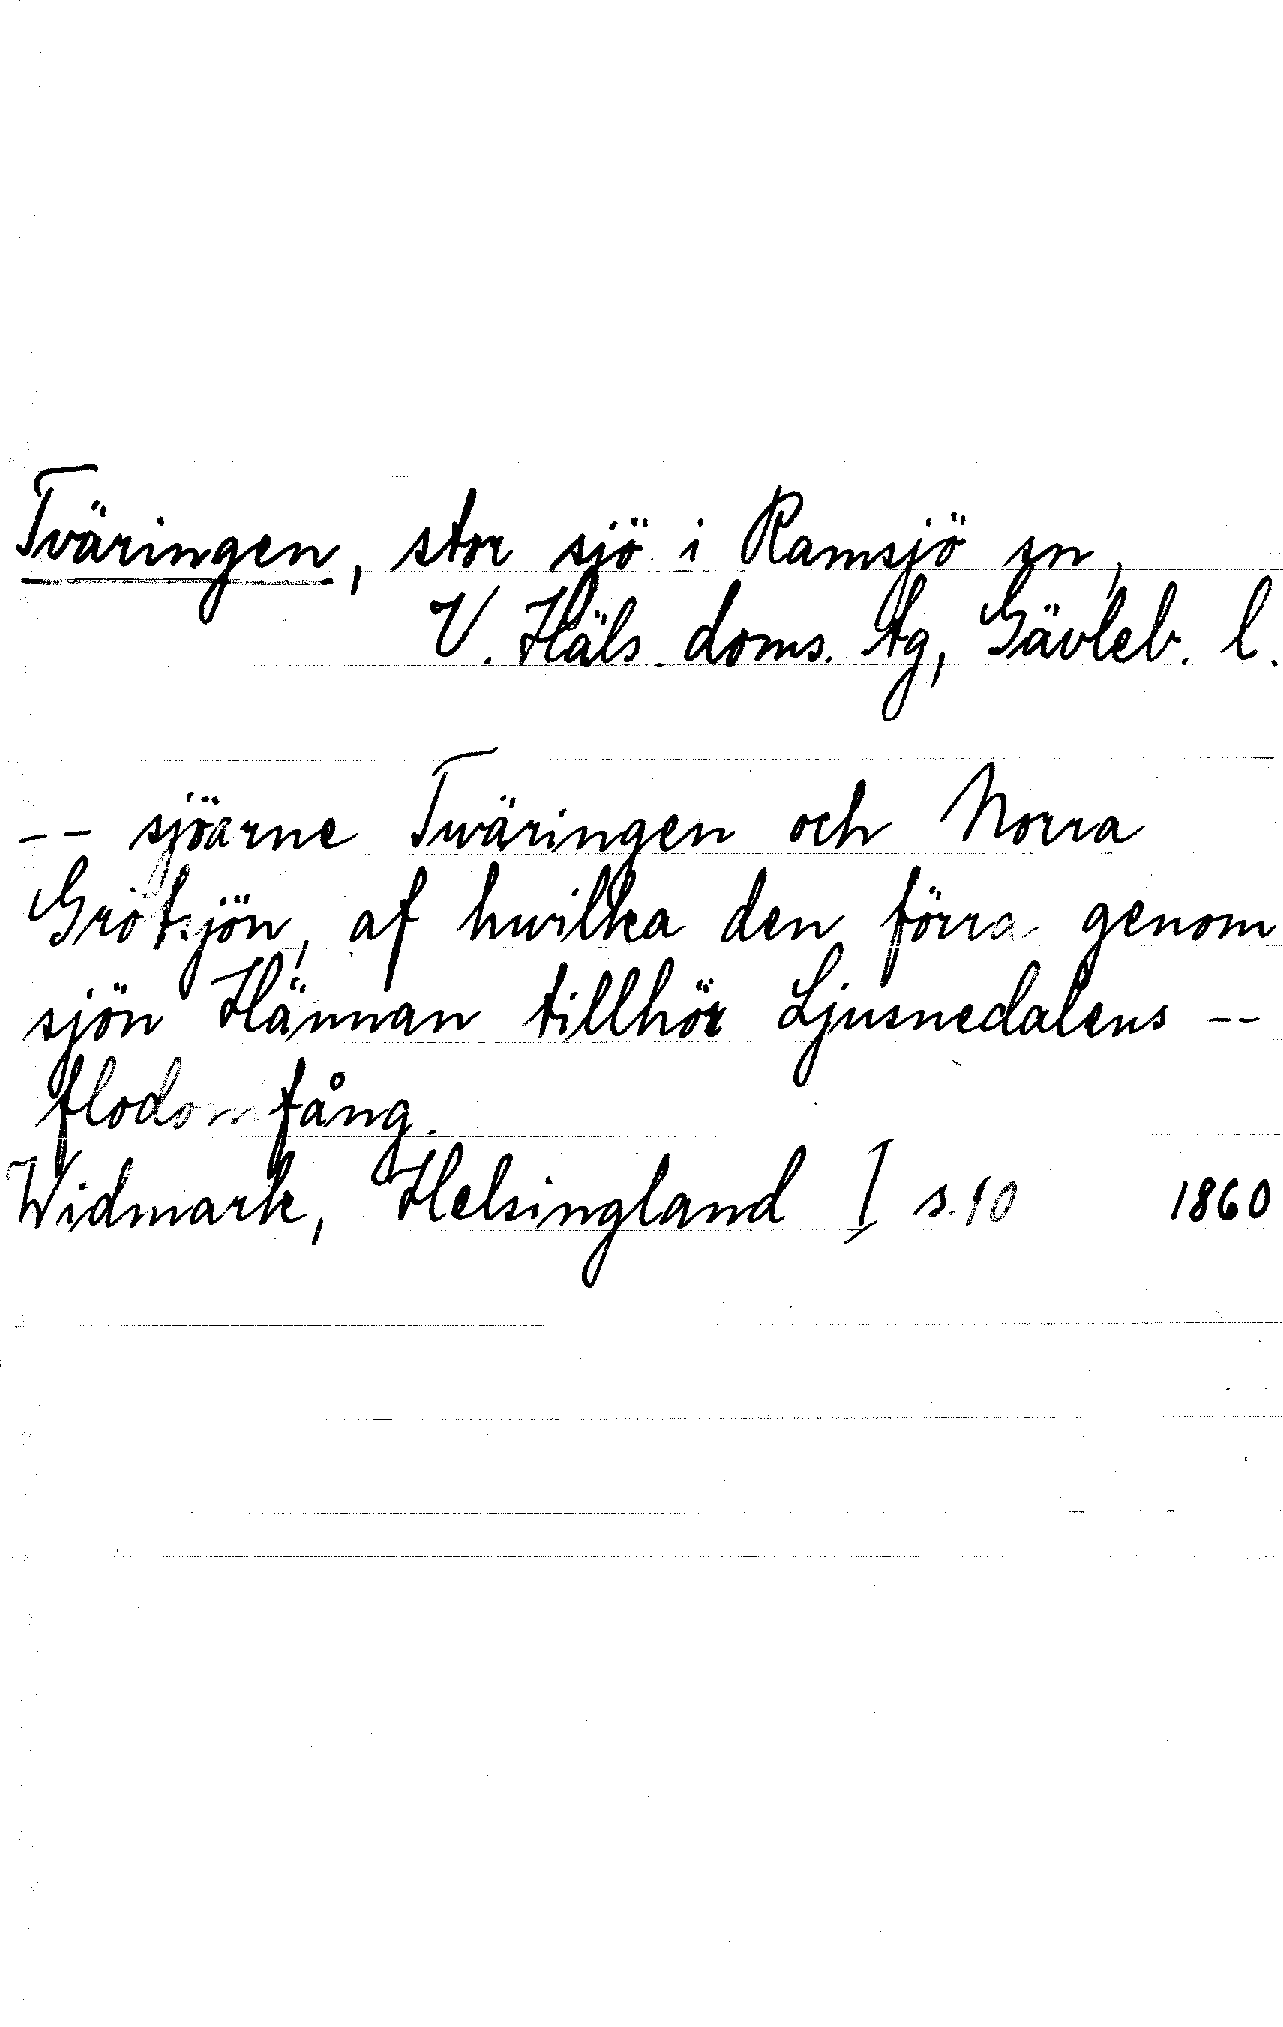 Tväringen, stor sjö i Ramsjö sn,
V. Häls. doms. tg, Gävleb. l.
-- sjöarne Twäringen och Norra
Grötsjön, af hwilka den förra genom
sjön Hännan tillhör Ljusnedalens --
flodomfång.
Widmark, Helsingland I s. 10 1860